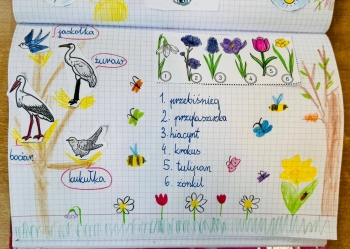 jaskółka
żuraw
bocian
kukułka
1 2 3 4 5 6
1. przebiśnieg
2. przylaszczka
3. hiacynt
4. krokus
5. tulipan
6. żonkil